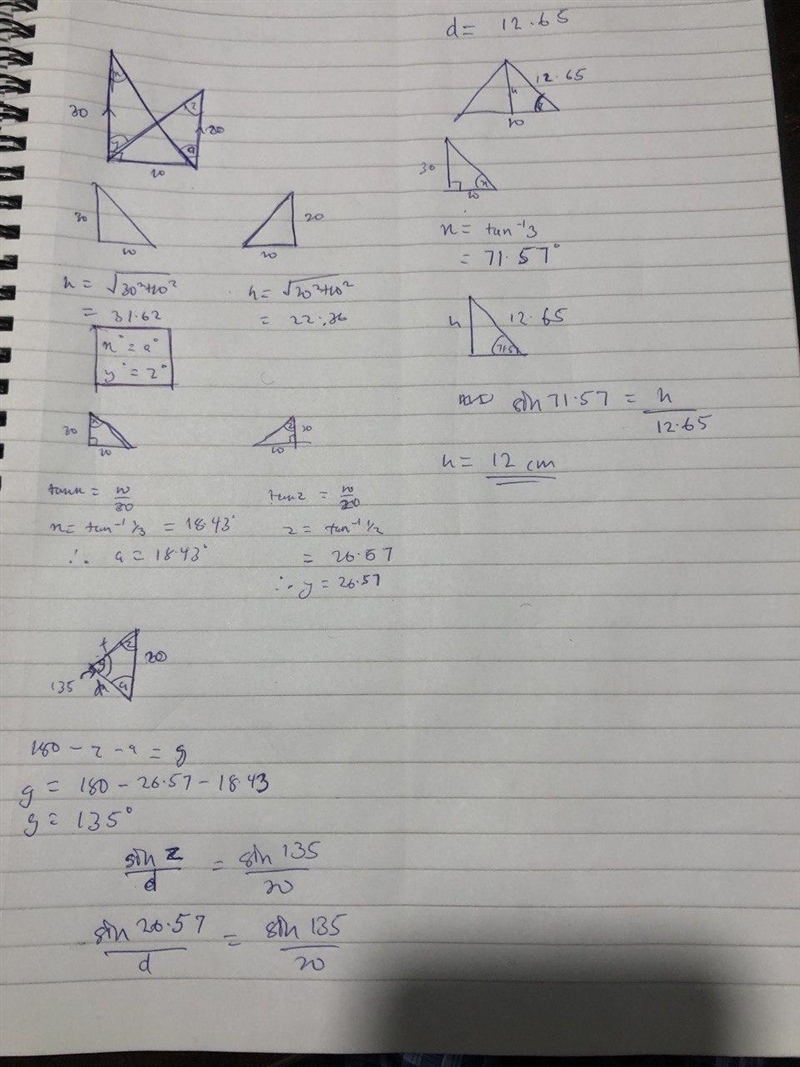 30
x
y
z
20
a
10
30
10
20
10
h = √30²+10²
= 31.62
h = √20²+10²
= 22.36
x° = a°
y° = z°
30
10
z
20
10
tanx = 10/30
x = tan⁻¹ 1/3 = 18.43°
∴ a = 18.43°
tanz = 10/20
z = tan⁻¹ 1/2
= 26.57
∴ y = 26.57
z
20
g
a
135
180 - z - a = g
g = 180 - 26.57 - 18.43
g = 135°
sin z/d = sin 135/20
sin 26.57/d = sin 135/20
d = 12.65
12.65
h
10
30
x
10
x = tan⁻¹3
= 71.57°
h
12.65
71.57
sin 71.57 = h/12.65
h = 12 cm